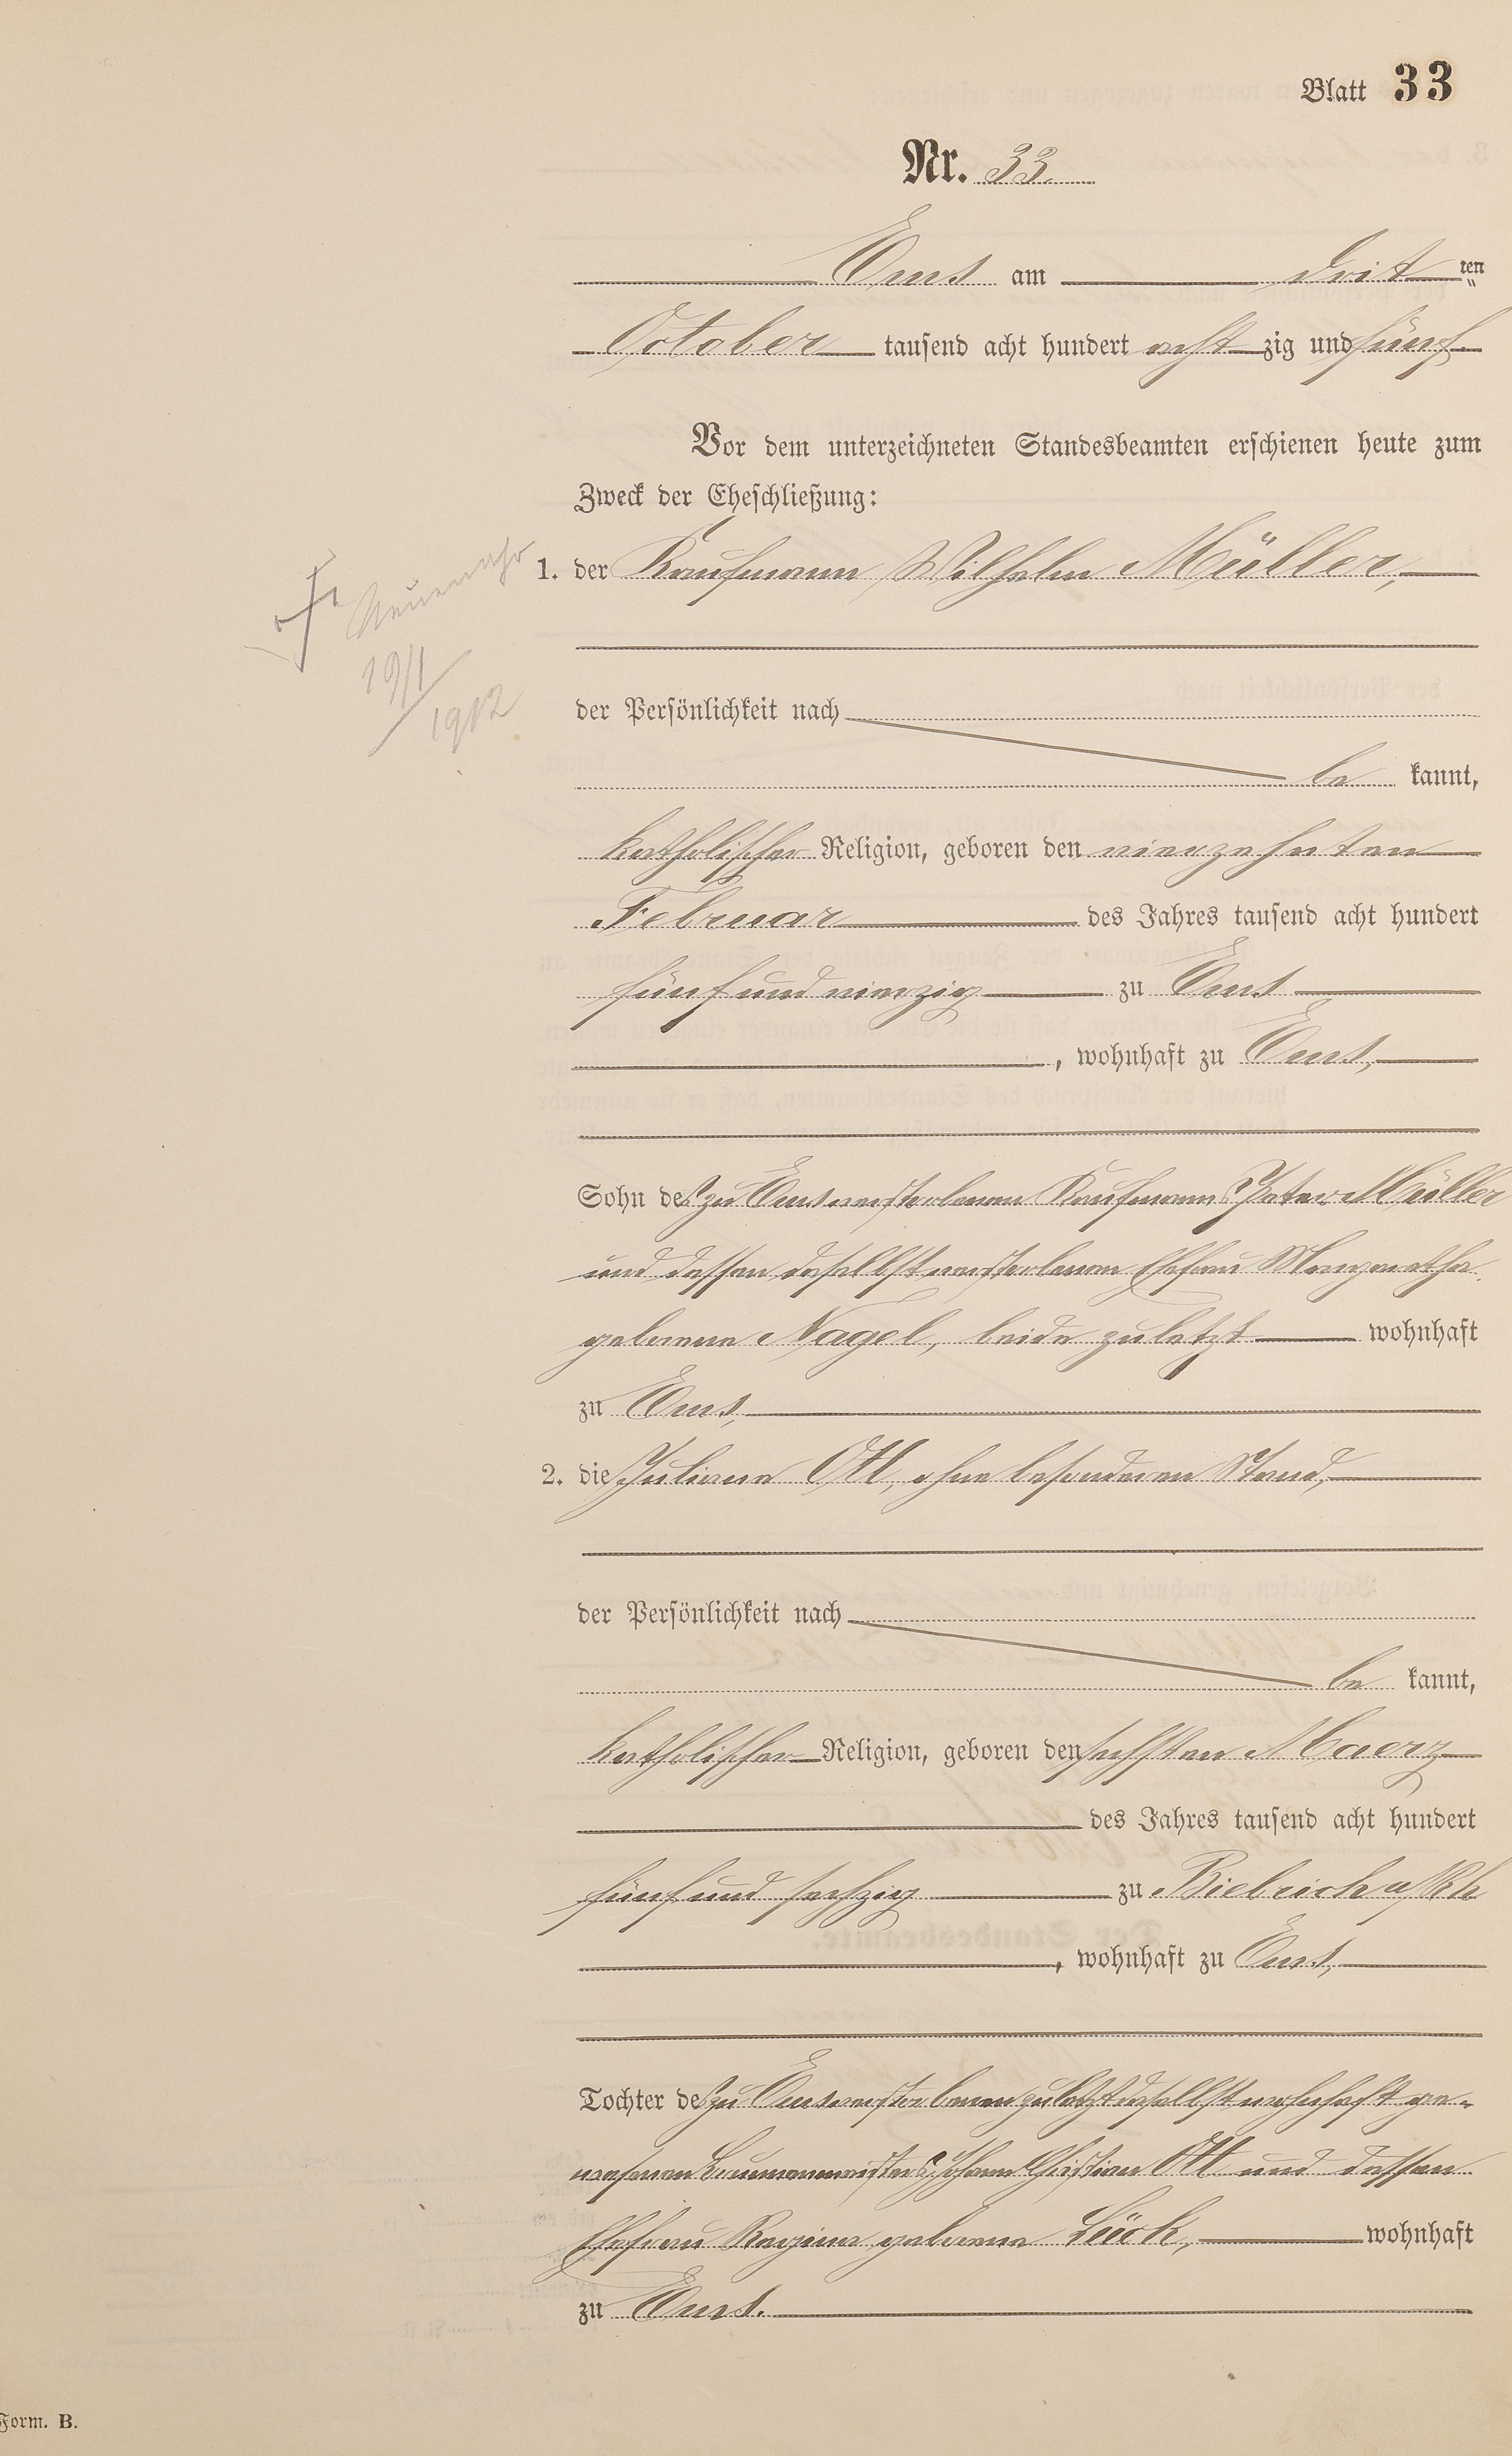 Blatt 33
Nr. 33.
Ems am dritten
October tausend acht hundert achtzig und fünf
Vor dem unterzeichneten Standesbeamten erschienen heute zum
Zweck der Eheschließung:
1. der Kaufmann Wilhelm Müller,
† Neuenahr
19/1
1912
der Persönlichkeit nach
be kannt,
katholischer Religion, geboren den vierzehnten
Februar des Jahres tausend acht hundert
fünf und vierzig zu Ems
, wohnhaft zu Ems,
Sohn des zu Ems verstorbenen Kaufmanns Peter Müller
und dessen daselbst verstorbenen Ehefrau Margaretha
geborene Nagel, beide zuletzt wohnhaft
zu Ems,
2. die Juliane Ott, ohne besonderen Stand,
der Persönlichkeit nach
be kannt,
katholischer Religion, geboren den sechsten Maerz
des Jahres tausend acht hundert
fünf und sechzig zu Biebrich a/Rh
, wohnhaft zu Ems,
Tochter des zu Ems verstorbenen zuletzt daselbst wohnhaft ge-
wesenen Johann Christian Ott und dessen
Ehefrau Regina geborene Lück, wohnhaft
zu Ems.
Form. B.